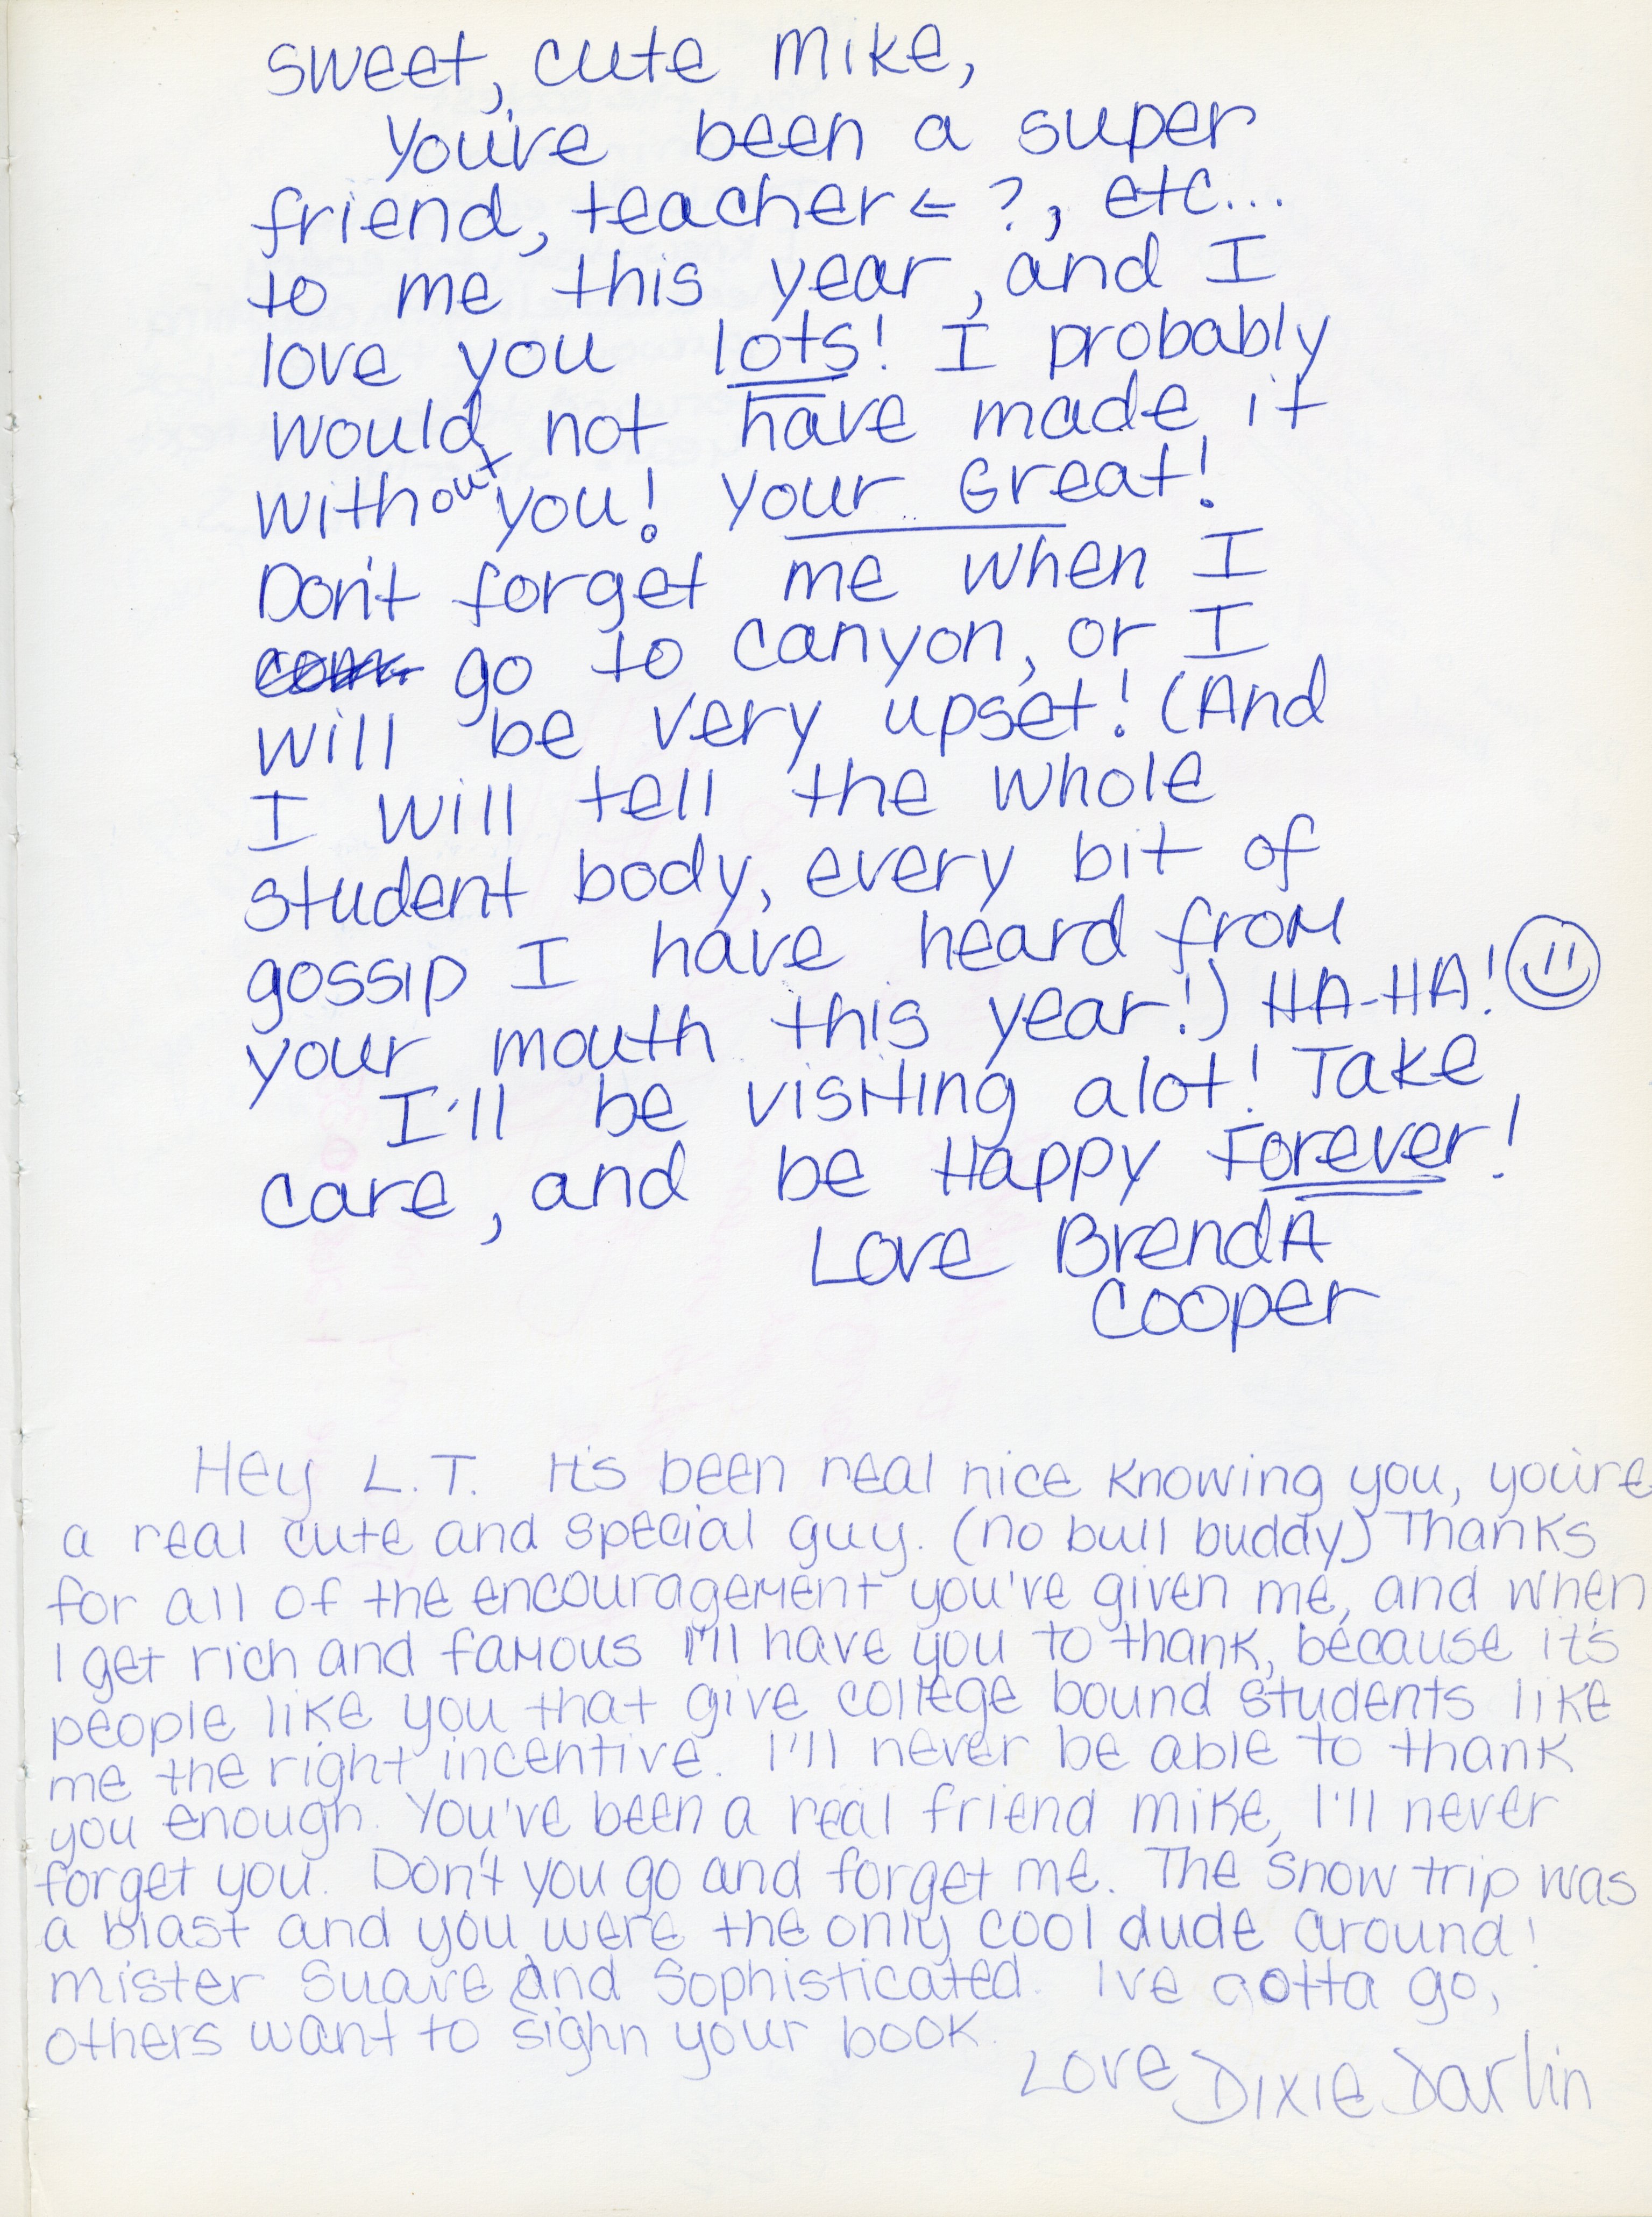 sweet, cute Mike,
You've been a super
friend, teacher ⇐ ?, etc...
to me this year, and I
love you lots! I probably
would not have made it
without you! Your Great!
Don't forget me when I
go to Canyon, or I
will be very upset! (And
I will tell the whole
student body, every bit of
gossip I have heard from
your mouth this year!) HA-HA!
I'll be visiting alot! Take
care, and be Happy Forever!
Love BrendA
Cooper
Hey L.T. It's been real nice knowing you, you're
a real cute and special guy. (no bull buddy) Thanks
for all of the encouragement you've given me, and when
I get rich and famous I'll have you to thank, because it's
people like you that give college bound students like
me the right incentive. I'll never be able to thank
you enough. You've been a real friend Mike, I'll never
forget you. Don't you go and forget me. The snow trip was
a blast and you were the only cool dude around!
mister Suave and Sophisticated. I've gotta go,
others want to sighn your book.
Love Dixie Darlin